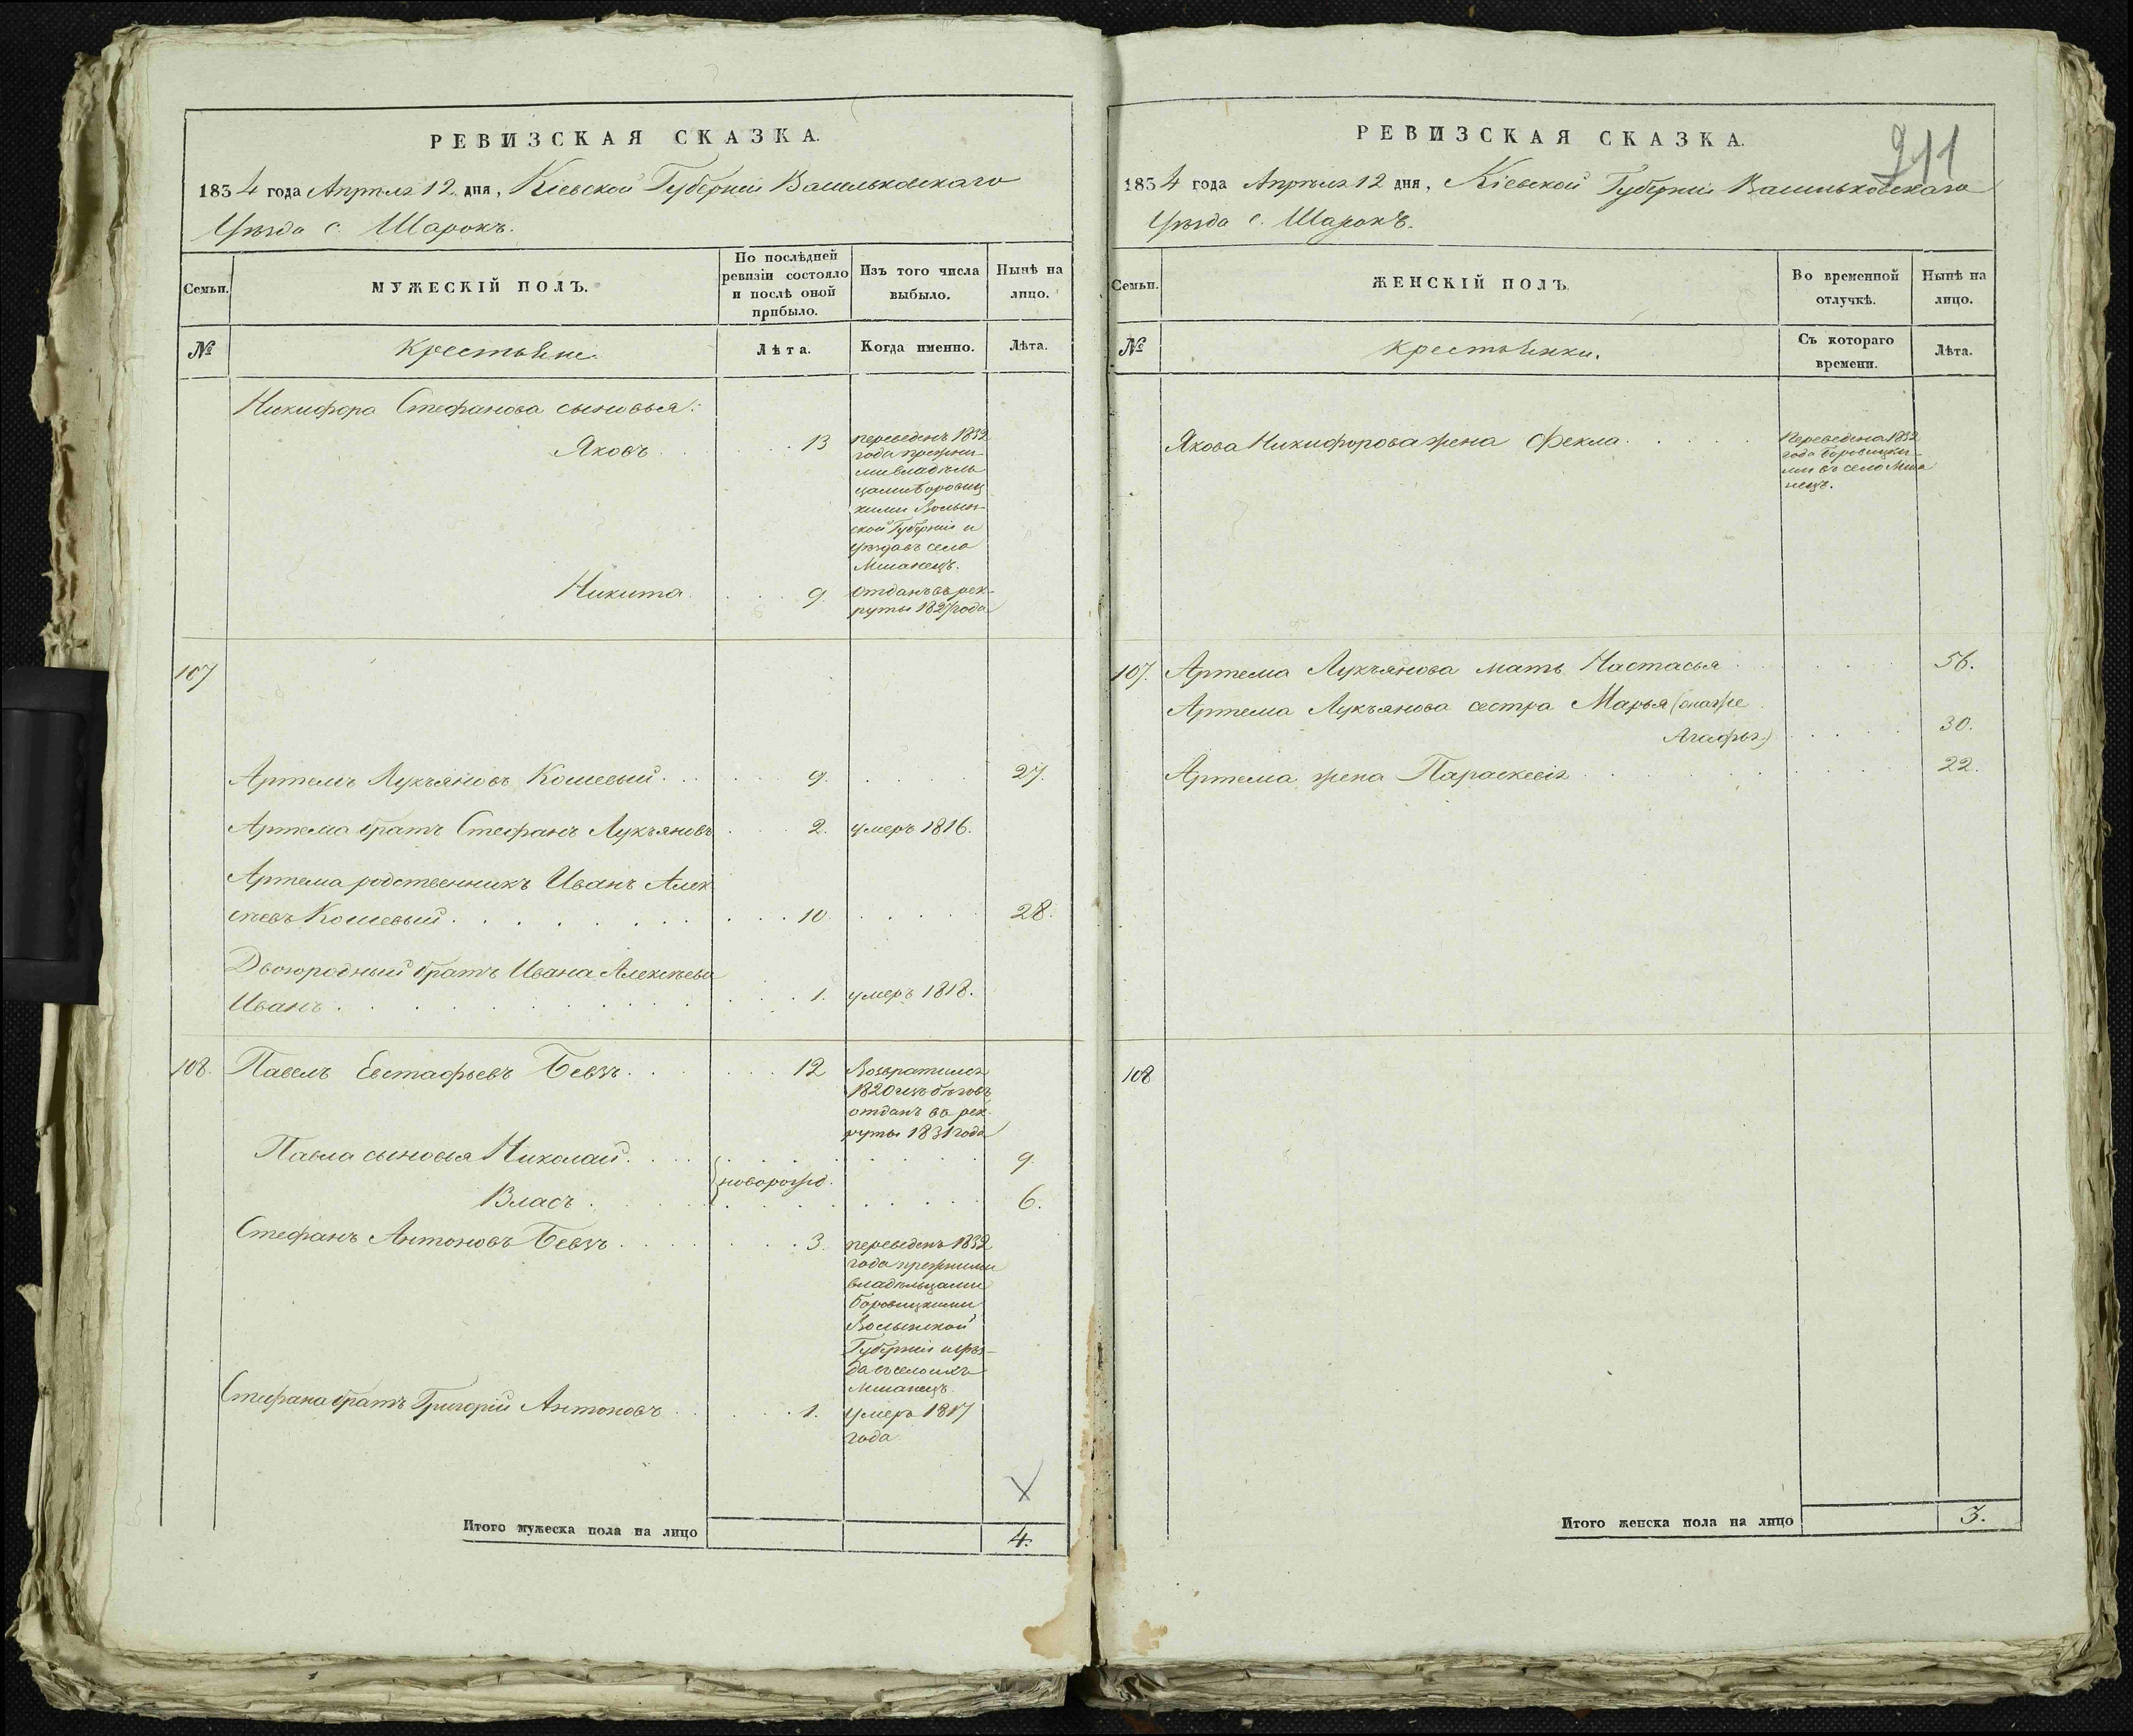 РЕВИЗСКАЯ СКАЗКА.
1834 года Апрѣля 12 дня, Кіевской Губерніи Васильковскаго
Уѣзда с. Шарокъ.
Семьи.
МУЖЕСКІЙ ПОЛЪ.
По послѣдней
ревизіи состояло
и послѣ оной
прибыло.
Изъ того числа
выбыло.
Нынѣ на
лицо.
№
Крестьяне.
Лѣта.
Когда именно.
Лѣта.
Никифора Стефанова сыновья:
Яковъ 13
переведенъ 1832
года прежни-
ми владѣль
цами Боровиц
кими Волын-
ской Губерніи и
уѣзда въ село
Мшанецъ.
Никита 9.
отданъ въ рек-
руты 1827 года
107
Артемъ Лукъяновъ Кошевый 9. 27.
Артема братъ Стефанъ Лукъяновъ 2. умеръ 1816.
Артема родственникъ Иванъ Алек
сѣевъ Кошевый 10. 28.
Двоюродный братъ Ивана Алексѣева
Иванъ 1. умеръ 1818.
108. Павелъ Евстафьевъ Бевзъ 12
Возвратился
1820 изъ бѣговъ
отданъ въ рек
руты 1831 года
Павла сыновья Николай 9.
новорожд.
Власъ 6.
Стефанъ Антоновъ Бевзъ 3.
переведенъ 1832
года прежними
владѣльцами
Боровицкими
Волынской
Губерніи и уѣз-
да въ село ихъ
Мшанецъ.
Стефана братъ Григорій Антоновъ 1.
умеръ 1817
года
Итого мужеска пола на лицо 4.
РЕВИЗСКАЯ СКАЗКА.
211
1834 года Апрѣля 12 дня, Кіевской Губерніи Васильковскаго
Уѣзда с. Шарокъ.
Семьи.
ЖЕНСКІЙ ПОЛЪ.
Во временной
отлучкѣ.
Нынѣ на
лицо.
№
Крестьянки.
Съ котораго
времени.
Лѣта.
Якова Никифорова жена Фекла
Переведена 1832
года Боровицки-
ми въ село Мша
нецъ.
107. Артема Лукъянова мать Настасья 56.
Артема Лукъянова сестра Марья (она же
Агафья) 30.
Артема жена Параскевія 22.
108
Итого женска пола на лицо 3.